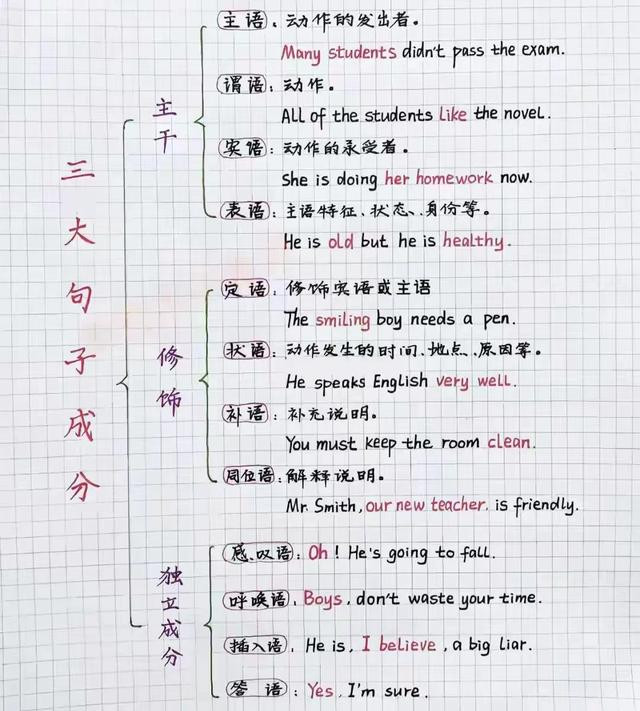 三大句子成分
主干
主语、动作的发出者。
Many students didn't pass the exam.
谓语：动作。
All of the students like the novel.
宾语：动作的承受者。
She is doing her homework now.
表语：主语特征、状态、身份等。
He is old but he is healthy.
修饰
定语：修饰宾语或主语
The smiling boy needs a pen.
状语：动作发生的时间、地点、原因等。
He speaks English very well.
补语：补充说明。
You must keep the room clean.
同位语：解释说明。
Mr. Smith, our new teacher. is friendly.
独立成分
感叹语：Oh! He's going to fall.
呼唤语、Boys, don't waste your time.
插入语、He is, I believe, a big liar.
答语：Yes, I'm sure.